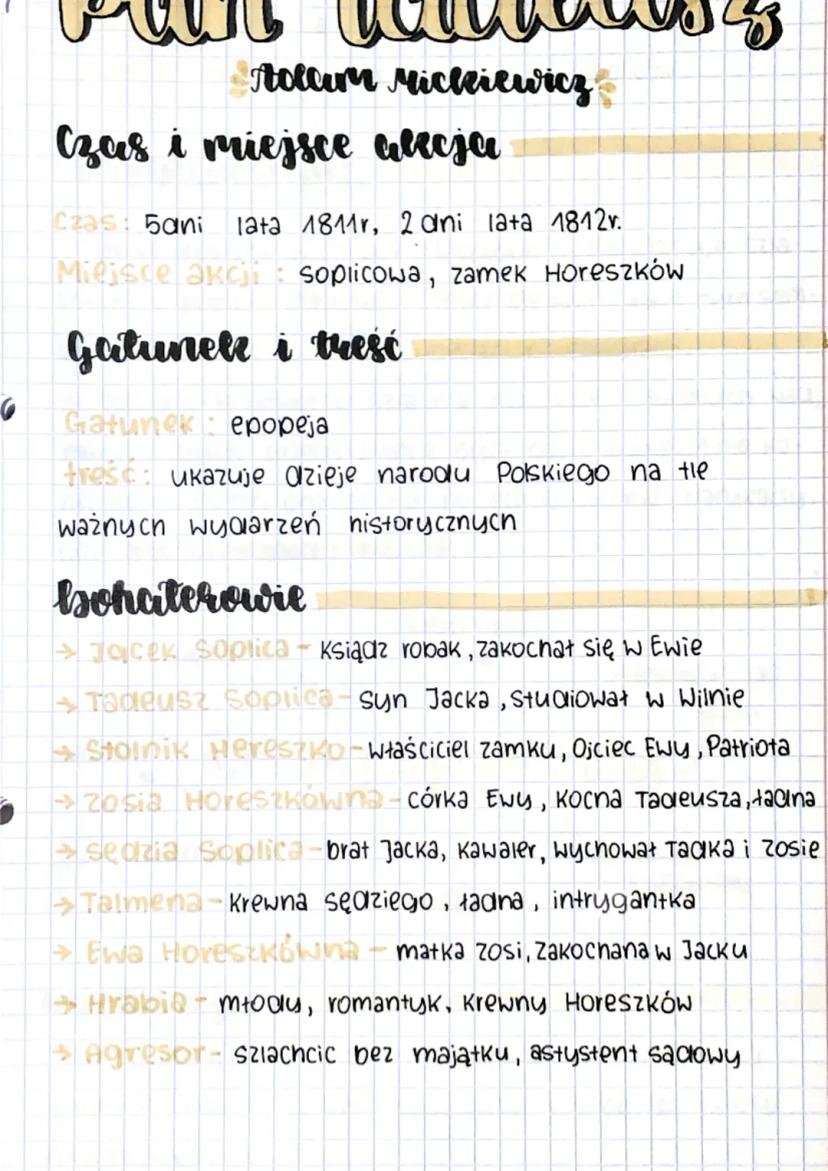 Pan Tadeusz
Adam Mickiewicz
Czas i miejsce akcja
Czas: 5dni lata 1811r, 2 dni lata 1812r.
Miejsce akcji: soplicowa, zamek Horeszków
Gatunek i treść
Gatunek: epopeja
treść: ukazuje dzieje narodu Polskiego na tle
ważnych wydarzeń historycznych
bohaterowie
→ Jacek Soplica - Ksiądz robak, zakochał się w Ewie
→ Tadeusz Soplica - syn Jacka, studiował w Wilnie
→ Stolnik Hereszko - właściciel zamku, Ojciec Ewy, Patriota
→ Zosia Horeszkówna - córka Ewy, kocha Tadeusza, ładna
→ sędzia Soplica - brat Jacka, kawaler, wychował Tadka i Zosie
→ Talmena - krewna sędziego, ładna, intrygantka
→ Ewa Horeszkówna - matka Zosi, zakochana w Jacku
→ Hrabia - młody, romantyk, krewny Horeszków
→ Agresor - szlachcic bez majątku, astystent sądowy